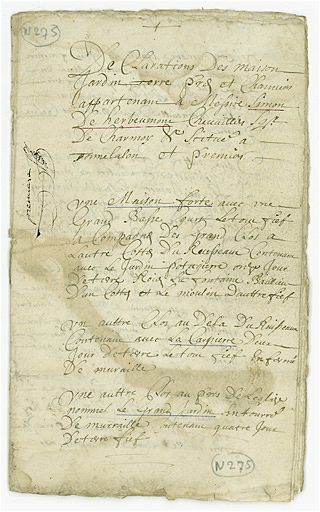 N 275
De Clarations Des maison
Jardin terre prés et Chanvirs
appartenant a Messire Simon
De herbeumont Chevaillié Sgr
De Charmoy & Scitué a
et Premier
premiere
Vne Maison forte avec vne
Grande Basse Court Le tou fief
a Compagné Du Grand Clos a
Lautre Cotté Du Ruisseau Contenant
avec Le Jardin potagiere onze Jour
De terre Roié La fontaine
D'un Cotté et Le moulin D'auttre fief
Vn auttre Clos au Dela Du Ruisseau
Contenant avec La Deux
Jour De terre Le tou fief Enfermé
De muraille
Vne auttre Clos au prés De Leglise
nommé Le Grand Jardin
De murraille Contenant quatre Jour
De terre fief
N 275